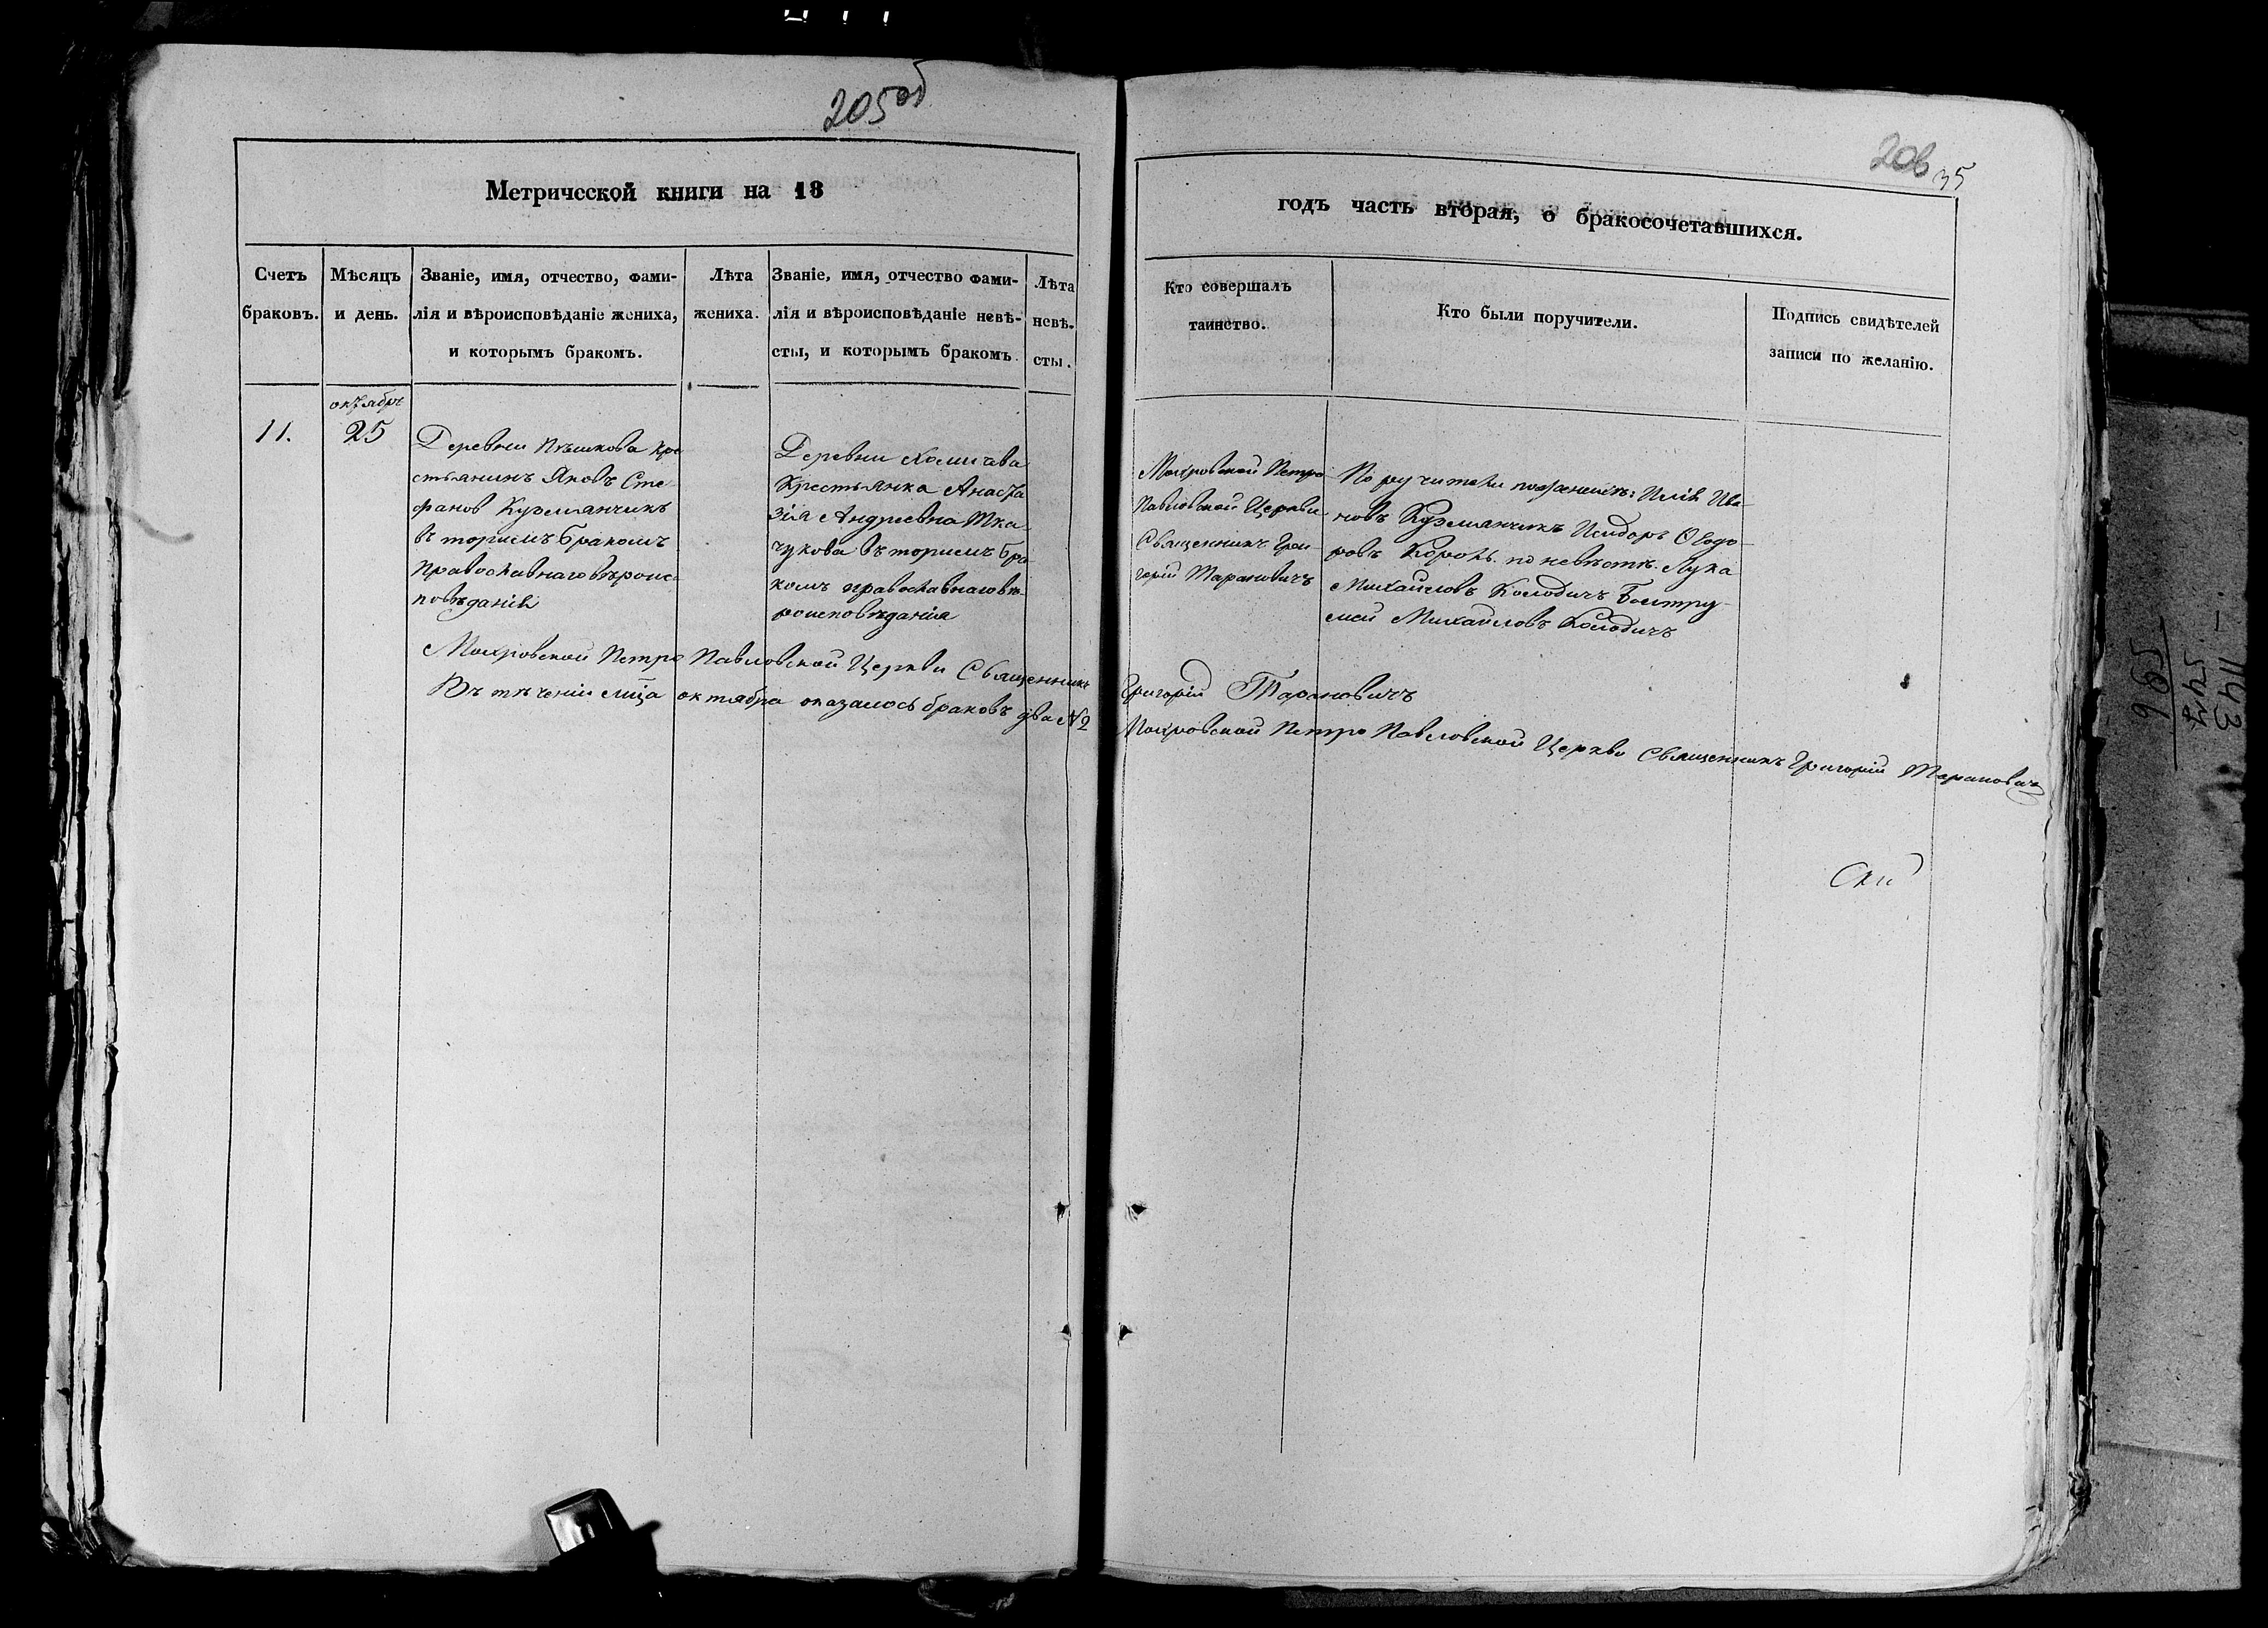 205 об
206 35
Метрической книги на 18
годъ часть вторая, о бракосочетавшихся.
Счетъ браковъ.
Мѣсяцъ и день.
Званіе, имя, отчество, фами-
лія и вѣроисповѣданіе жениха,
и которымъ бракомъ.
Лѣта
жениха.
Званіе, имя, отчество фами-
лія и вѣроисповѣданіе невѣ-
сты, и которымъ бракомъ
Лѣта
невѣ-
сты.
Кто совершалъ
таинство.
Кто были поручители.
Подпись свидѣтелей
записи по желанію.
11.
октябръ
25
Деревни Пѣшкова кре
стьянинъ Яковъ Сте
фанов Кузмянчикъ
вторимъ бракомъ
православнаго вѣроис
повѣданія
Деревни Хомичева
Крестьянка Анаста
зія Андреевна Тка
чукова вторимъ бра
комъ православнаго вѣ
роисповѣданія
Мохровской Петро
Павловской Церкви
Священникъ Гри-
горій Тарановичъ
Поручители по женихѣ: Илія Ива-
новъ Кузмянчикъ Исидоръ Ѳеодо-
ровъ Король. по невѣстѣ. Лука
Михайловъ Колодичъ
мей Михайловъ Колодичъ
Мохровской Петро Павловской Церкви Священникъ Григорій Тарановичъ
Въ теченіи мца октября оказалось браковъ два №2
Мохровской Петро Павловской Церкви Священникъ Григорій Тарановичъ
1143
544